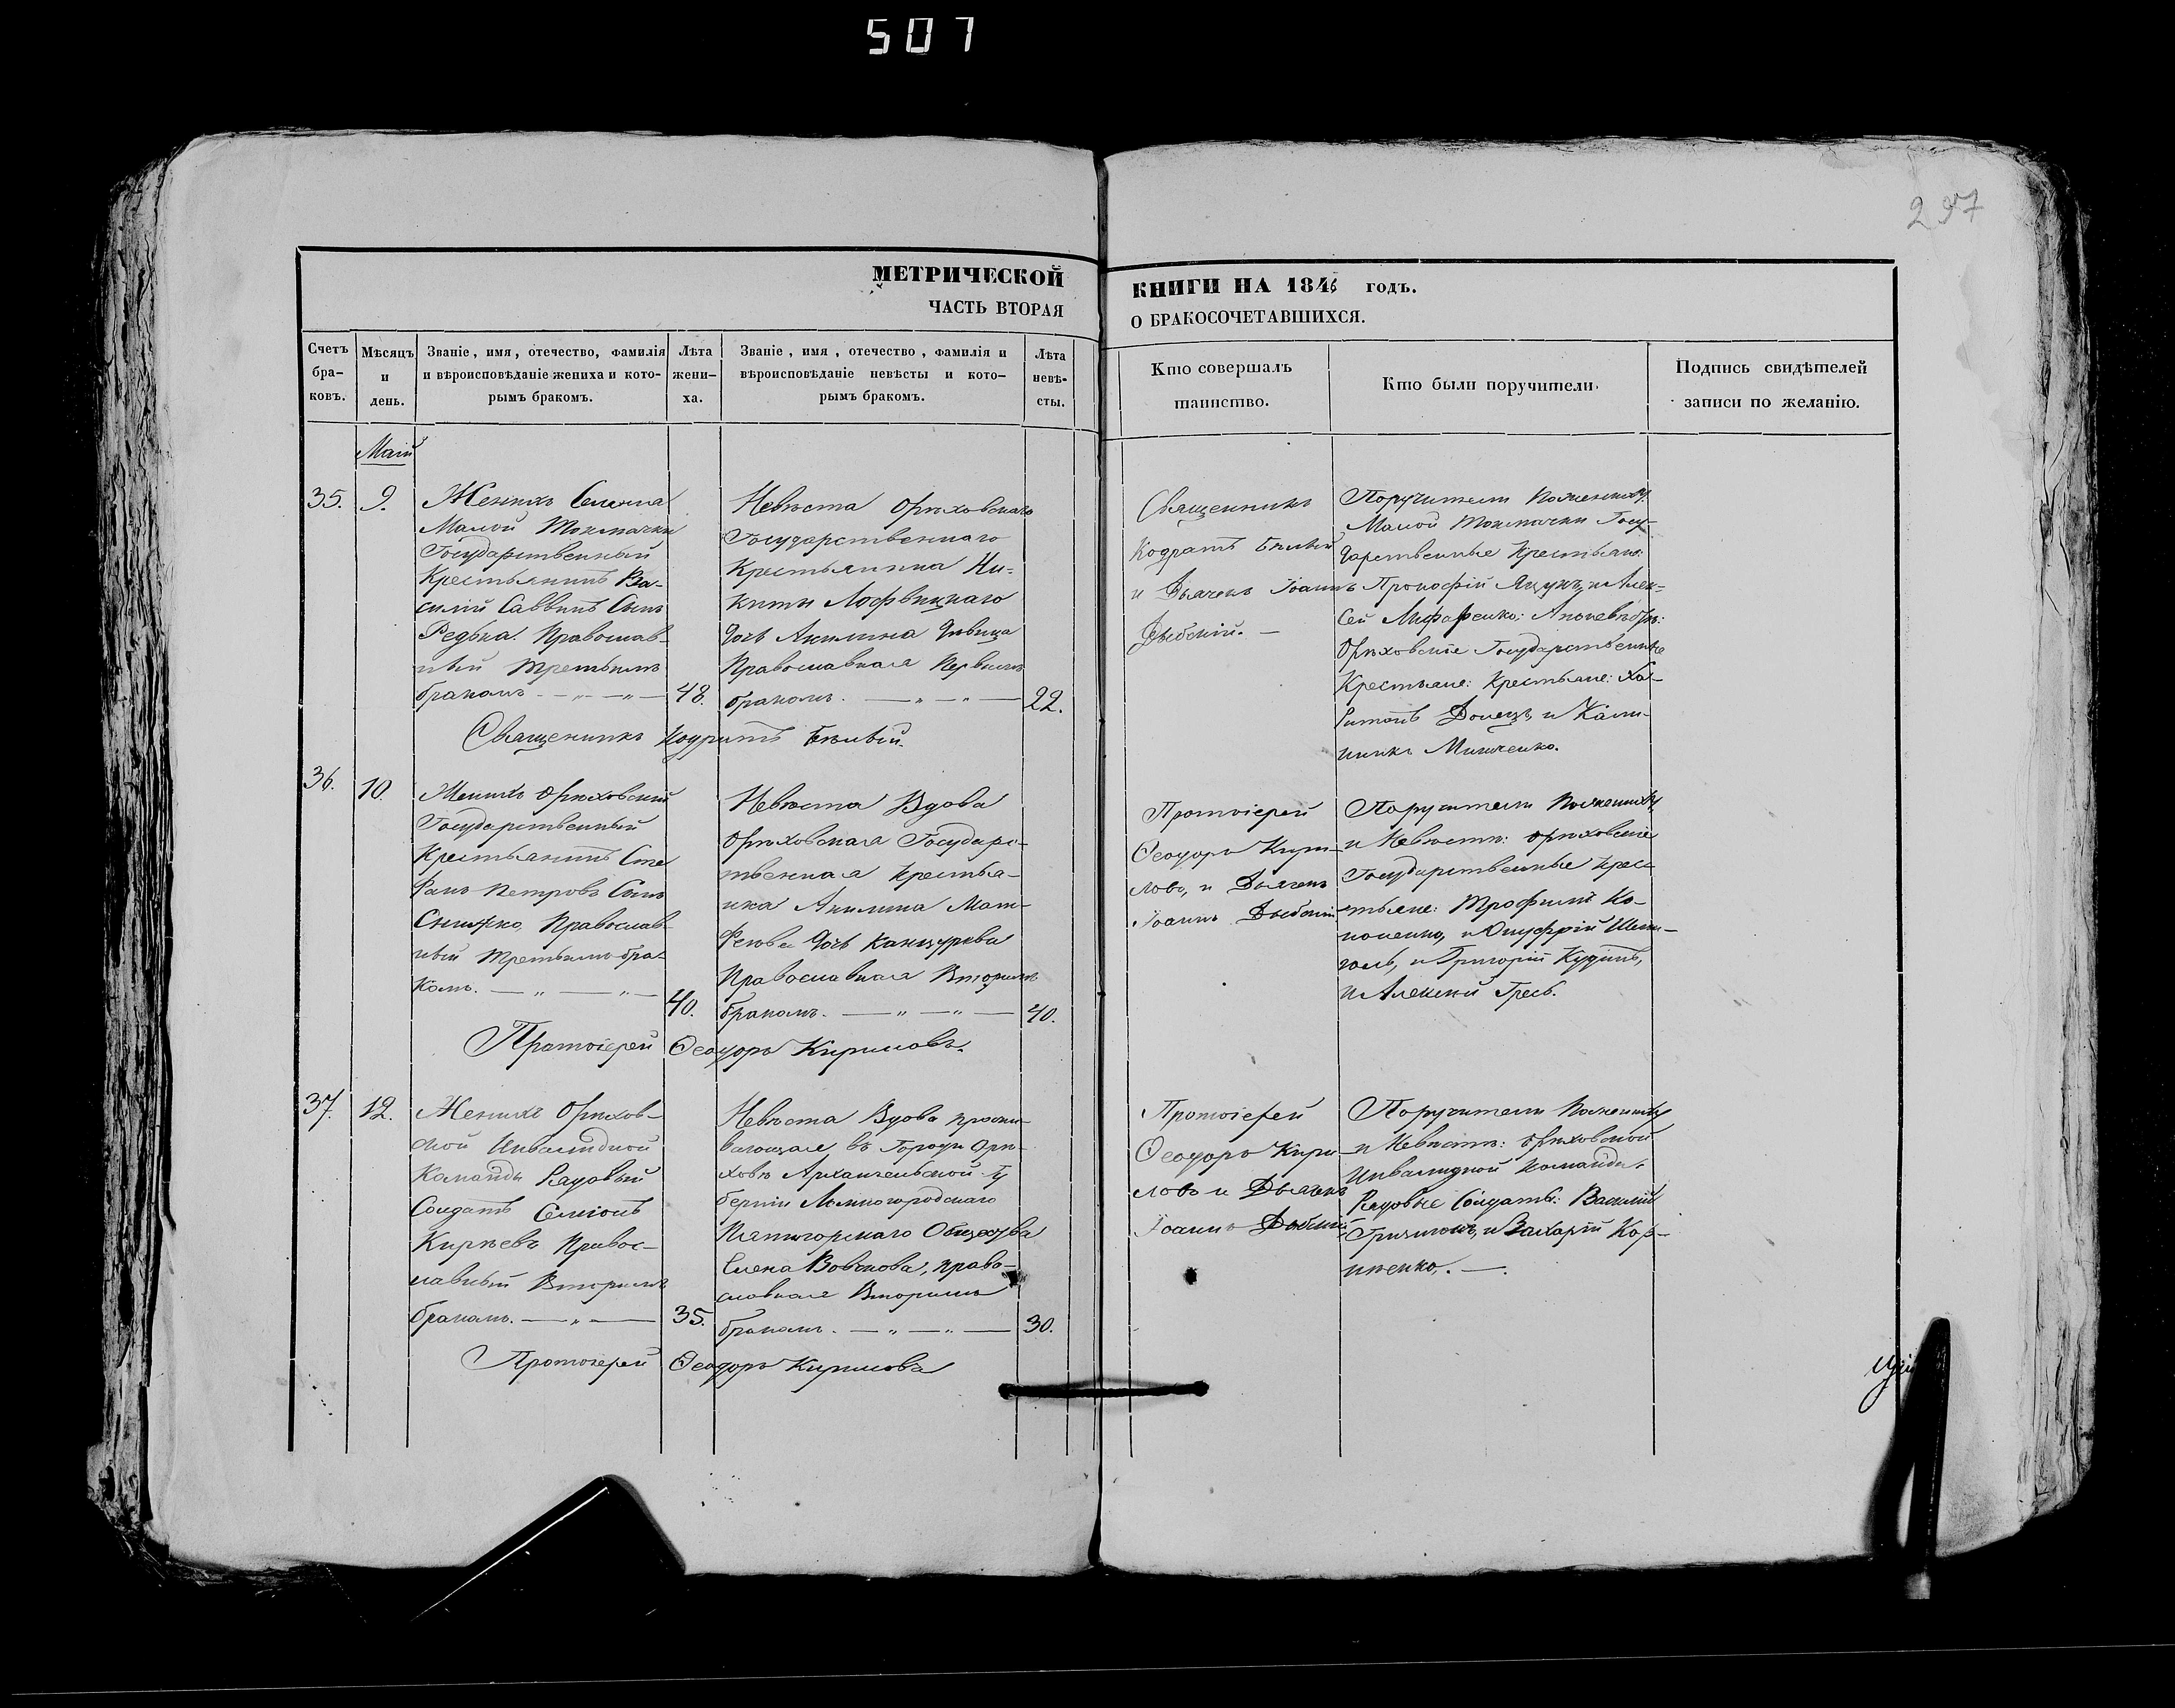 507
297
МЕТРИЧЕСКОЙ
ЧАСТЬ ВТОРАЯ
КНИГИ НА 1846 годъ.
О БРАКОСОЧЕТАВШИХСЯ.
Счетъ бра-ковъ.
Мѣсяцъ и день.
Званіе, имя, отечество, фамилія
и вѣроисповѣданіе жениха и кото-
рымъ бракомъ.
Лѣта жени-ха.
Званіе, имя, отечество, фамилія и
вѣроисповѣданіе невѣсты и кото-
рымъ бракомъ.
Лѣта невѣ-сты.
Кто совершалъ
таинство.
Кто были поручители.
Подпись свидѣтелей
записи по желанію.
Маій
35.
9.
Женихъ Селенія
Малой Токмачки
Государственный
Крестьянинъ Ва-
силій Саввинъ Сынъ
Редька. Православ-
ный третьимъ
бракомъ.
48.
Невѣста Орѣховскаго
Государственнаго
Крестьянина Ни-
киты Лофвицкаго
дочь Акилина дѣвица
Православная Первымъ
бракомъ.
22.
Священникъ Кодратъ Бѣлый.
Священникъ
Кодратъ Бѣлый
и Дьячекъ Іоаннъ
Дыбскій.
Поручители По жениху
Малой Токмачки Госу-
дарственные Крестьяне:
Прокофій Яцунъ, и Алек-
сей : А по невѣстѣ:
Орѣховскіе Государственные
Крестьяне: Крестьяне: Ха-
ритонъ Донецъ, и Кали-
никъ Мищенко.
36.
10.
Женихъ Орѣховскій
Государственный
Крестьянинъ Сте
фанъ Петровъ Сынъ
Снижко, Православ-
ный третьимъ бра-
комъ.
40.
Невѣста Вдова
Орѣховская Государс-
твенная Крестья-
нка Акилина Мат-
феева дочь
Православная Вторымъ
бракомъ.
40.
Протоіерей Ѳеодоръ Кириловъ.
Протоіерей
Ѳеодоръ Кири-
ловъ, и Дьячекъ
Іоаннъ Дыбскій
Поручители По жениху
и Невѣстѣ: Орѣховскіе
Государственные Крес-
тьяне: Трофимъ Ко-
ноненко, и Онуфрій
и Григорій
и Алексий Гресь.
37.
12.
Женихъ Орѣхов-
ской Инвалидной
Команды Рядовый
Солдатъ Симіонъ
Кирѣевъ Правос-
лавный Вторымъ
бракомъ.
35.
Невѣста Вдова прожи-
вающая въ Городи Орѣ-
ховѣ Архангельской гу
берніи
Пятигорскаго Общества
Елена Вовкова, право-
славная Вторымъ
бракомъ.
30.
Протоіерей Ѳеодоръ Кириловъ
Протоіерей
Ѳеодоръ Кири-
ловъ и Дьячекъ
Іоаннъ Дыбскій
Поручители По жениху
и Невѣстѣ: Орѣховской
Инвалидной Команды
Рядовые Солдаты: Василій
и Захарій Кор-
нѣенко.